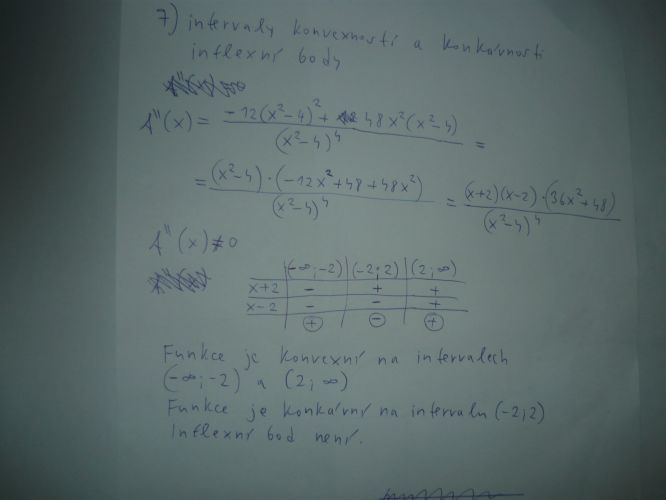 7) intervaly konvexnosti a konkávnosti
inflexní body
f''(x) = (-12(x²-4)² + 48x²(x²-4)) / (x²-4)⁴ =
= ((x²-4)·(-12x²+48+48x²)) / (x²-4)⁴ = ((x+2)(x-2)·(36x²+48)) / (x²-4)⁴
f''(x) ≠ 0
(-∞;-2) (-2;2) (2;∞)
x+2 - + +
x-2 - - +
+ - +
Funkce je konvexní na intervalech
(-∞;-2) a (2;∞)
Funkce je konkávní na intervalu (-2;2)
Inflexní bod není.